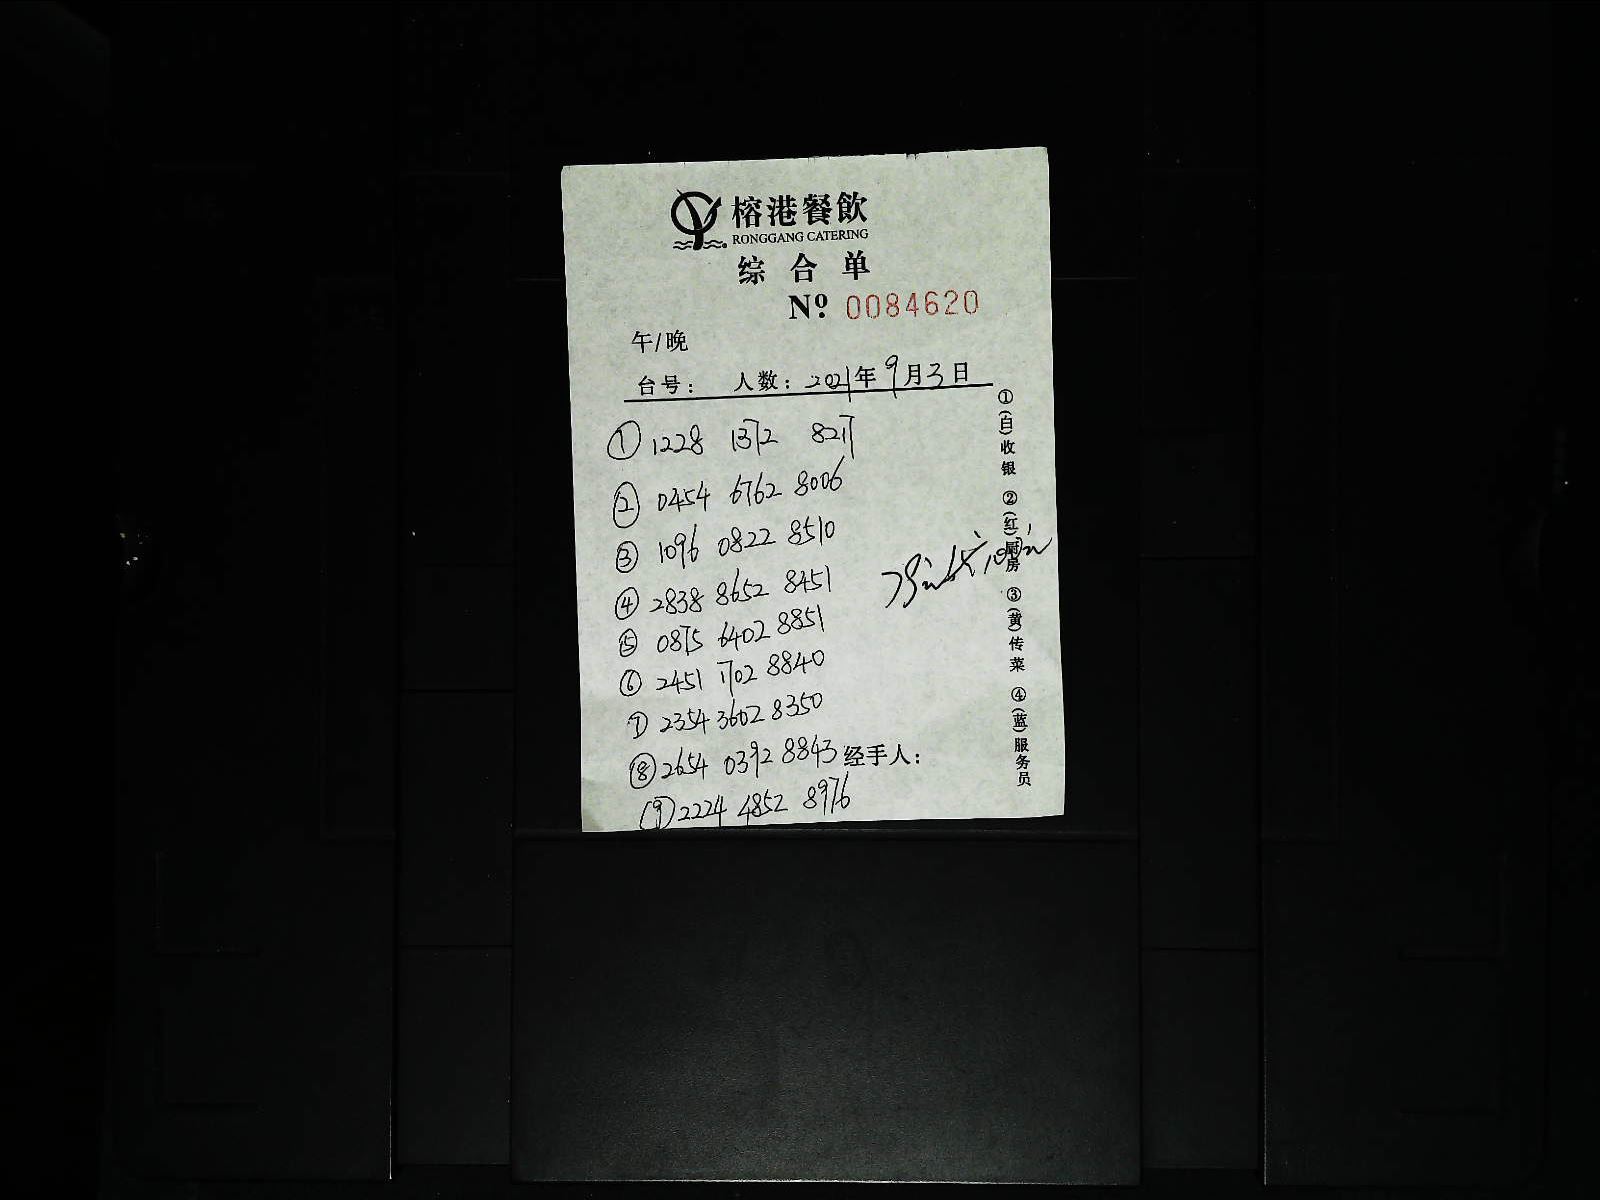 榕港餐飲
RONGGANG CATERING
综合单
Nº 0084620
午/晚
台号: 人数: 2021年9月3日
① 1228 1372 8217
② 0454 6762 8006
③ 1096 0822 8510
④ 2838 8652 8451
⑤ 0875 6402 8851
⑥ 2451 1702 8840
⑦ 2354 3602 8350
⑧ 2654 0392 8843 经手人:
⑨ 2224 4852 8976
①(白)收银 ②(红)厨房 ③(黄)传菜 ④(蓝)服务员